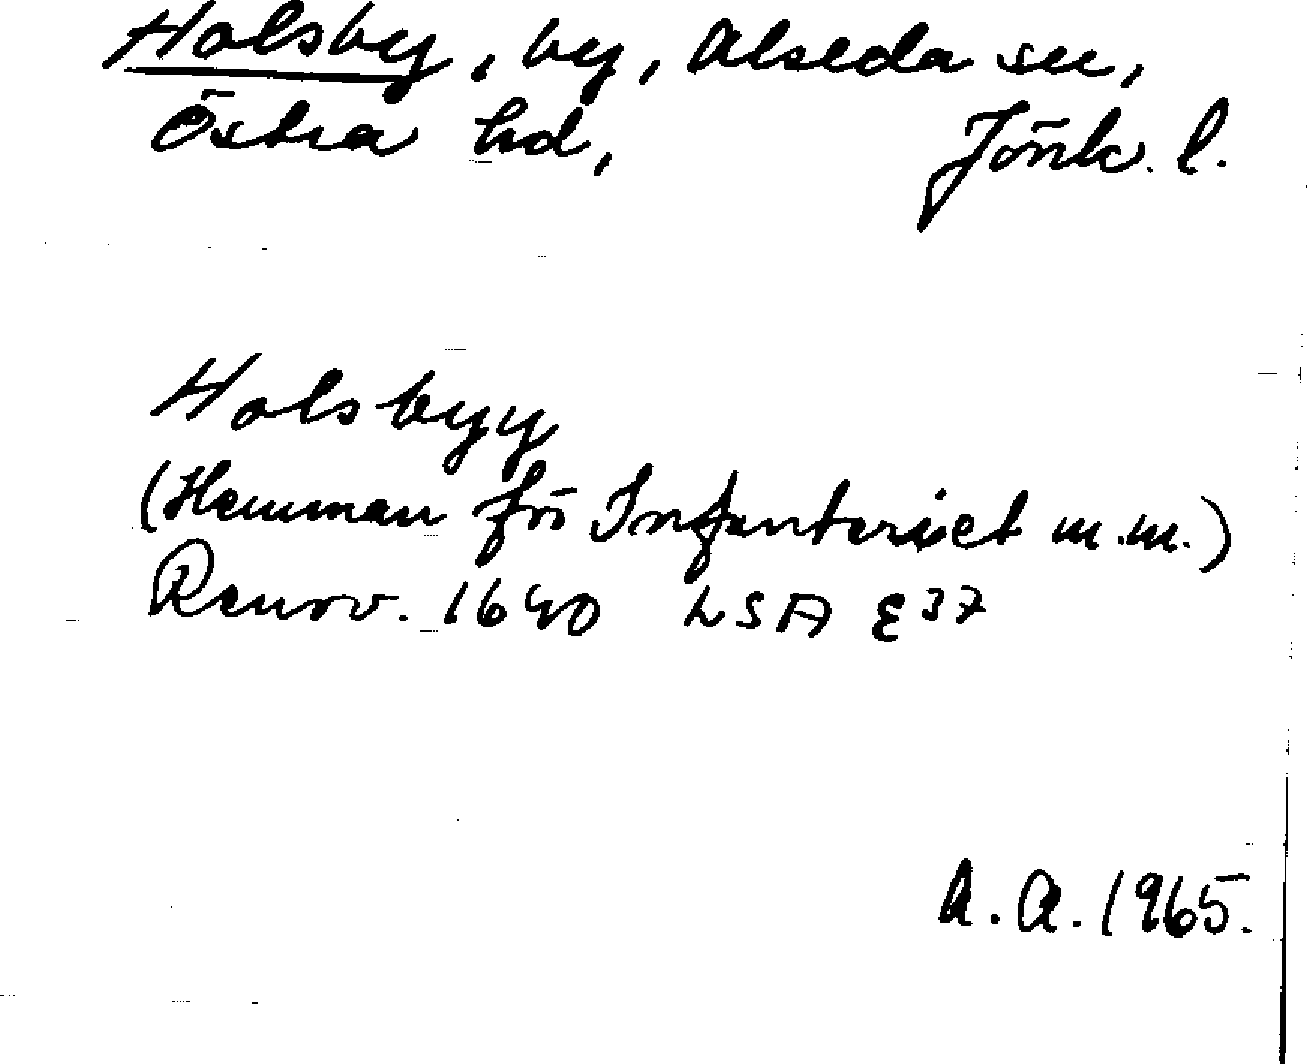 Holsby, by, Alseda sn,
Östra hd, Jönk. l.
Holsbyy
(Hemman för Infanteriet m.m.)
Renov. 1640 LSA E37
A.A. 1965.